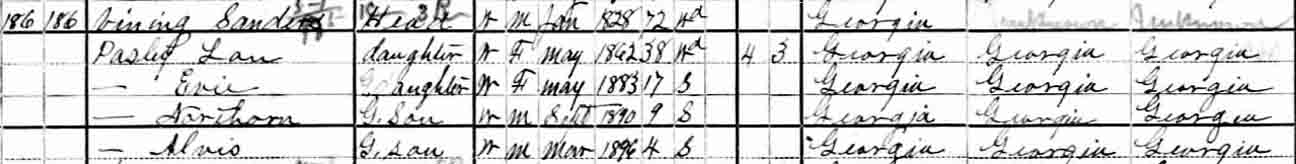 186 186 Vining Sanders Head W M Jan 1828 72 Wd Georgia Unknown Unknown
Pasley Lou daughter W F May 1862 38 Wd 4 3 Georgia Georgia Georgia
— Evie G daughter W F May 1883 17 S Georgia Georgia Georgia
— Northorn G. Son W M Sept 1890 9 S Georgia Georgia Georgia
— Alvis G. son W M Mar 1896 4 S Georgia Georgia Georgia